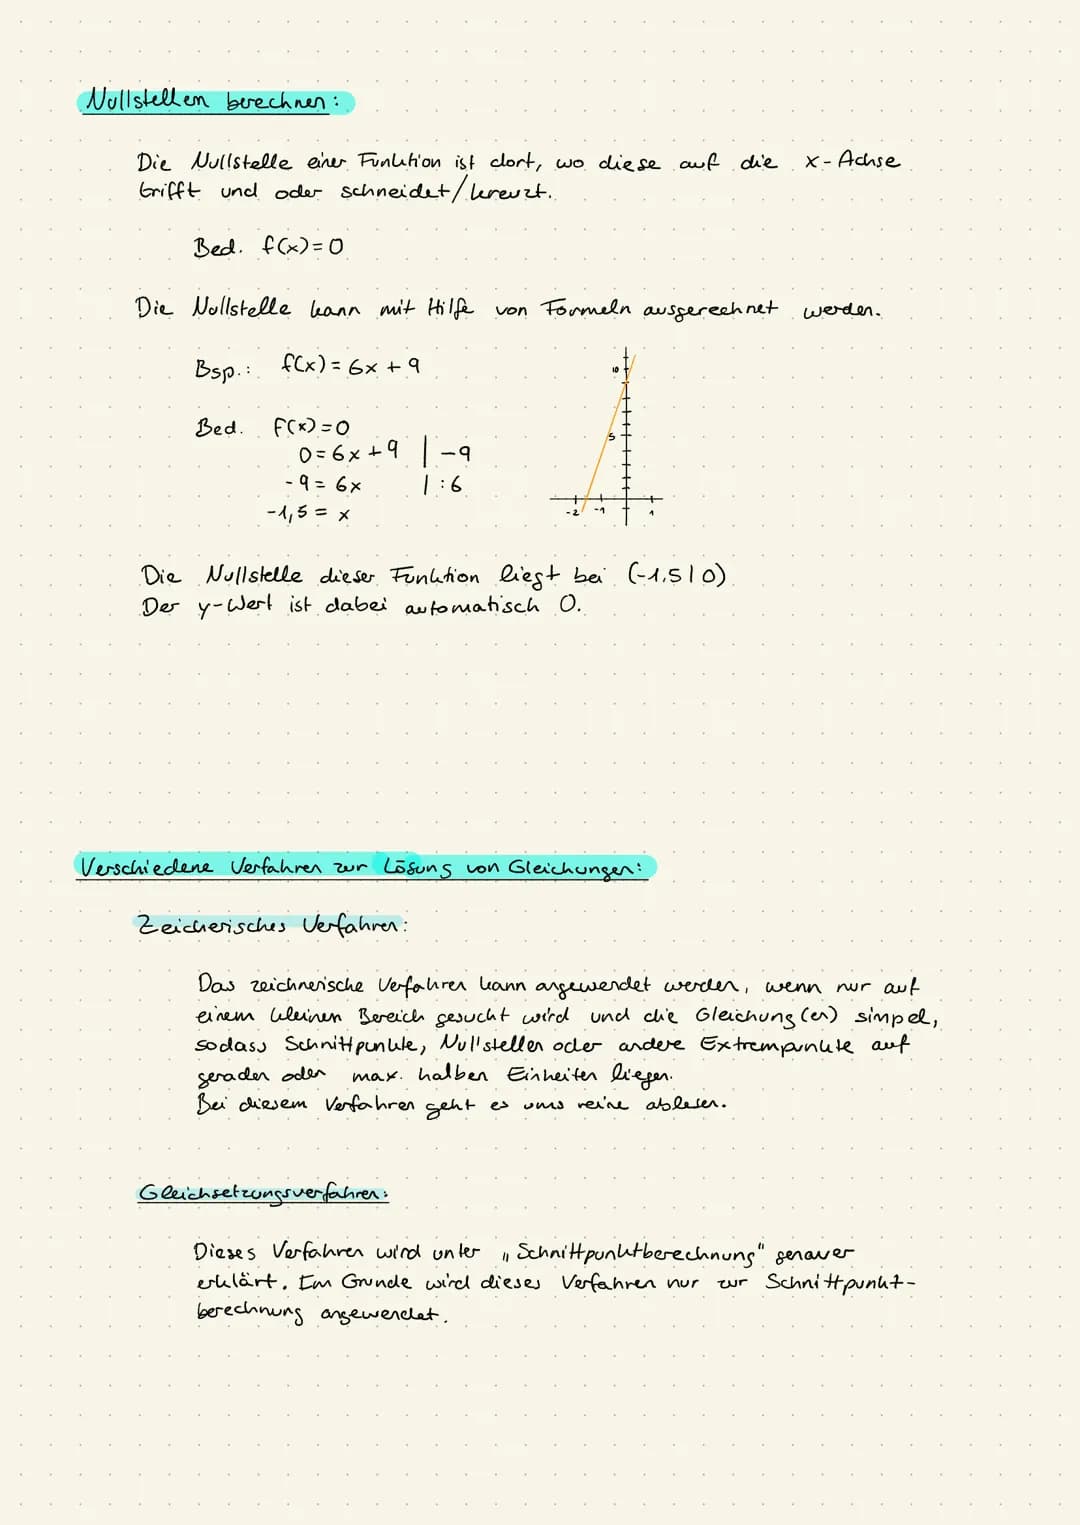 Nullstellen berechnen:
Die Nullstelle einer Funktion ist dort, wo diese auf die x-Achse
trifft und oder schneidet/kreuzt.
Bed. f(x)=0
Die Nullstelle kann mit Hilfe von Formeln ausgerechnet werden.
Bsp.: f(x) = 6x + 9
Bed. f(x)=0
0 = 6x + 9 | -9
-9 = 6x | :6
-1,5 = x
10
5
-2 -1 1
Die Nullstelle dieser Funktion liegt bei (-1,5|0)
Der y-Wert ist dabei automatisch 0.
Verschiedene Verfahren zur Lösung von Gleichungen:
Zeicherisches Verfahren:
Das zeichnerische Verfahren kann angewendet werden, wenn nur auf
einem kleinen Bereich gesucht wird und die Gleichung(en) simpel,
sodass Schnittpunkte, Nullstellen oder andere Extrempunkte auf
geraden oder max. halben Einheiten liegen.
Bei diesem Verfahren geht es ums reine ablesen.
Gleichsetzungsverfahren:
Dieses Verfahren wird unter „Schnittpunktberechnung" genauer
erklärt. Im Grunde wird dieses Verfahren nur zur Schnittpunkt-
berechnung angewendet.